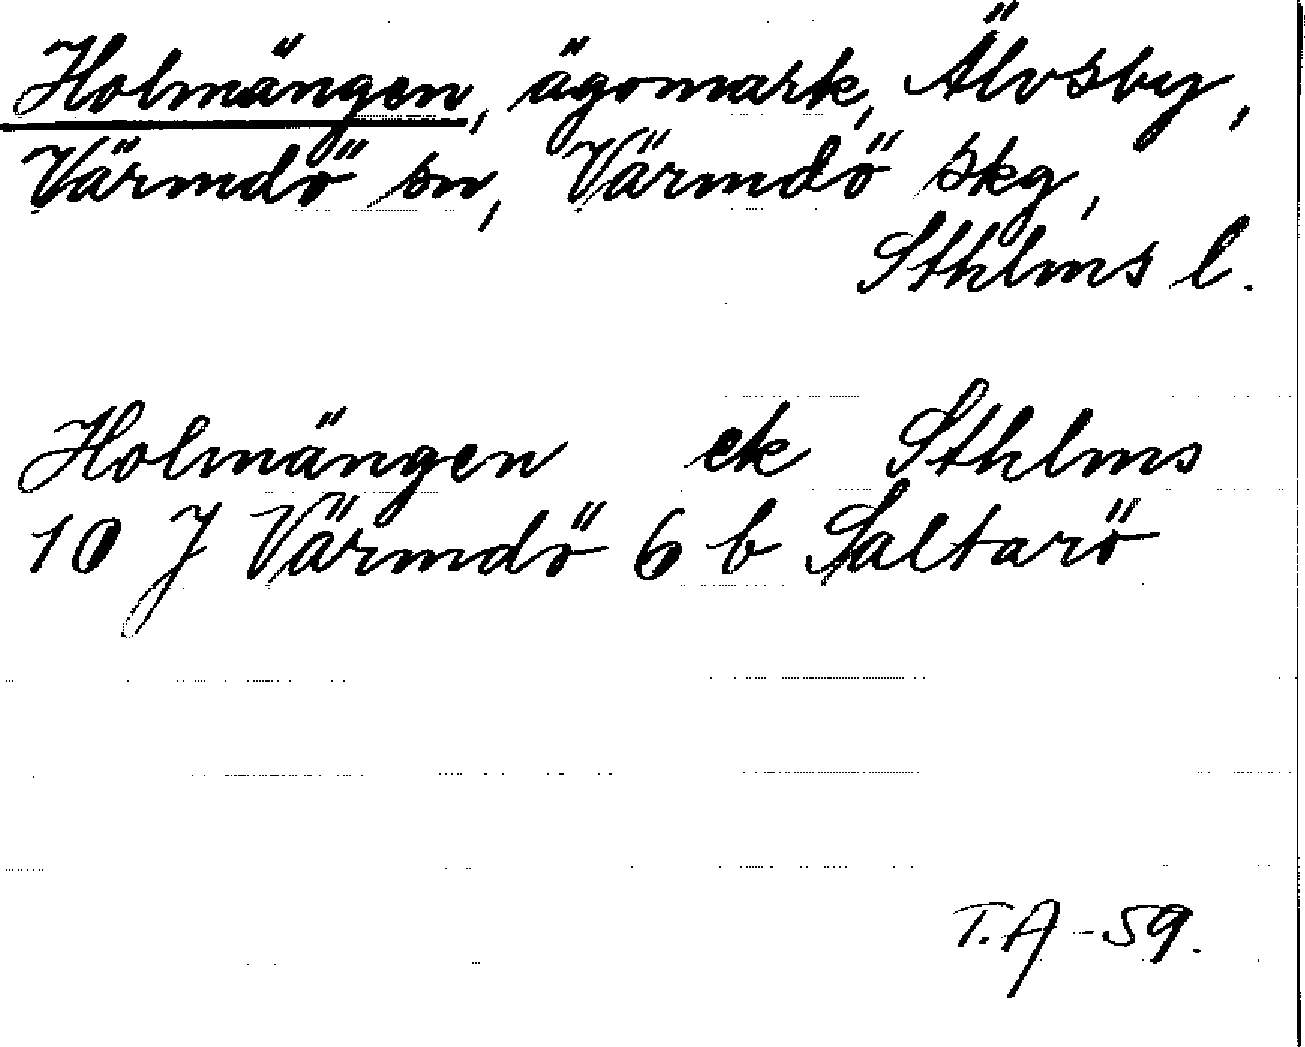 Holmängen, ägomark, Älvsby,
Värmdö sn, Värmdö skg,
Sthlms l.
Holmängen ek Sthlms
10 J Värmdö 6 b Saltarö
T.A -59.